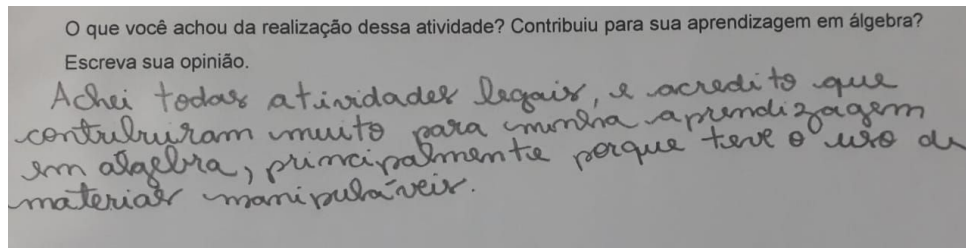 O que você achou da realização dessa atividade? Contribuiu para sua aprendizagem em álgebra?
Escreva sua opinião.
Achei todas atividades legais, e acredito que
contribuiram muito para minha aprendizagem
em álgebra, principalmente porque teve o uso de
materiais manipuláveis.